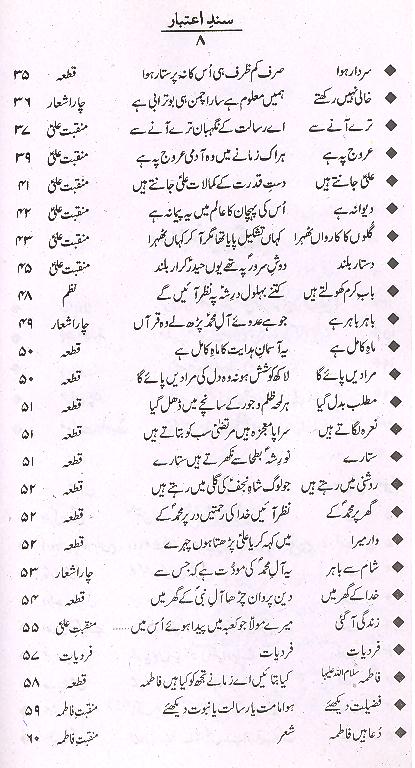 سندِ اعتبار
۸
سردار ہوا صرف کم ظرف ہی اُس کا نہ پرستار ہوا قطعہ ۳۵
خالی نہیں رکھتے ہمیں معلوم ہے سارا چمن ہی بوترابی ہے چار اشعار ۳۶
ترے آنے سے اے رسالت کے نگہبان ترے آنے سے منقبت علیؑ ۳۷
عروج پہ ہے ہر اک زمانے میں وہ آدمی عروج پہ ہے منقبت علیؑ ۳۹
علیؑ جانتے ہیں دستِ قدرت کے کمالات علیؑ جانتے ہیں منقبت علیؑ ۴۱
دیوانہ ہے اُس کی پہچان کا عالم میں یہ پیمانہ ہے منقبت علیؑ ۴۲
گلوں کا کارواں ٹھہرا کہاں تشکیل پایا تھا مگر آ کر کہاں ٹھہرا منقبت علیؑ ۴۳
دستار بلند دوشِ سرورؐ پہ تھے یوں حیدرِ کرار بلند منقبت علیؑ ۴۵
باب کرم کھولتے ہیں کتنے بہلول درِ شہؑ پہ نظر آئیں گے نظم ۴۸
باہر باہر ہے جو ہے عدوئے آلِ محمدؐ پڑھ لے وہ قرآں چار اشعار ۴۹
ماہِ کامل ہے یہ آسمانِ ہدایت کا ماہِ کامل ہے قطعہ ۵۰
مرادیں پائے گا لاکھ کوشش ہو نہ وہ دل کی مرادیں پائے گا قطعہ ۵۰
مطلب بدل گیا ہر لمحہ ظلم و جور کے سانچے میں ڈھل گیا قطعہ ۵۱
نعرہ لگاتے ہیں سراپا معجزہ ہیں مرتضیٰؑ سب کو بتاتے ہیں قطعہ ۵۱
ستارے نورِ شہِؐ بطحا سے نکھرتے ہیں ستارے قطعہ ۵۱
روشنی میں رہتے ہیں جو لوگ شاہِ نجفؑ کی گلی میں رہتے ہیں قطعہ ۵۲
گھر پر محمدؐ کے نظر آئیں خدا کی رحمتیں در پر محمدؐ کے قطعہ ۵۲
وار میرا میں کہہ کر یا علیؑ پڑھتا ہوں چہرے قطعہ ۵۲
شام سے باہر یہ آلِ محمدؐ کی مودّت ہے کہ جس سے چار اشعار ۵۳
خدا کے گھر میں دین پروان چڑھا آلِ نبیؐ کے گھر میں قطعہ ۵۴
زندگی آ گئی میرے مولاؑ جو کعبہ میں پیدا ہوئے اُس میں...... منقبت علیؑ ۵۵
فردیات فردیات فردیات ۵۷
فاطمہ سلام اللہ علیہا کیا بتائیں اے زمانے تجھ کو کیا ہیں فاطمہؑ قطعہ ۵۸
فضیلت دیکھئے ہو امامت یا رسالت یا نبوت دیکھئے منقبت فاطمہؑ ۵۹
دُعا ہیں فاطمہؑ شعر منقبت فاطمہؑ ۶۰